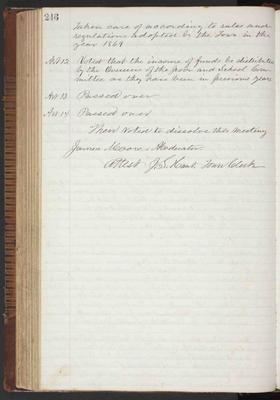 246
taken care of according to rules and
regulations adopted by the Town in the
year 1869
Art 12 Voted that the income of funds be distributed
by the Overseers of the poor and School Com-
mittee as they have been in previous years
Art 13 Passed over
Art 14 Passed over
Then Voted to dissolve this meeting
James Moore Moderator
Attest J. S. Town Clerk